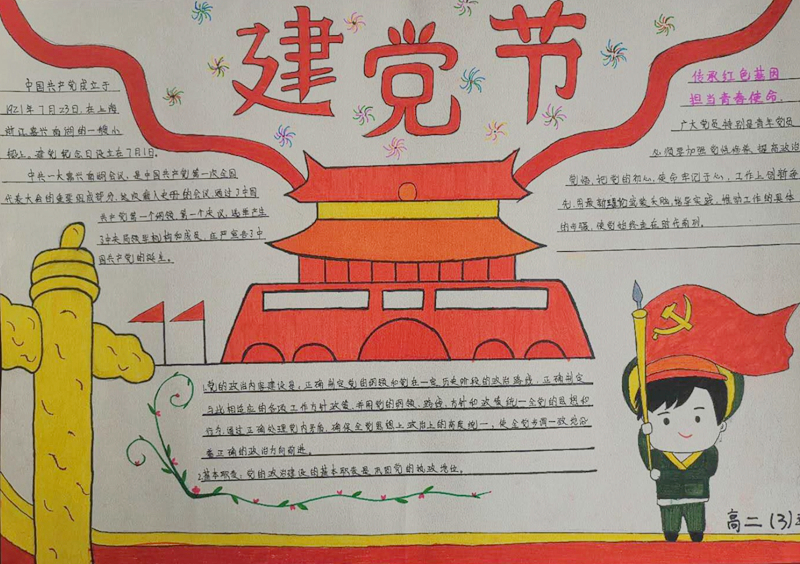 建党节
中国共产党成立于
1921年7月23日,在上海
浙江嘉兴南湖的一艘小
船上。建党纪念日设立在7月1日。
中共一大嘉兴南湖会议,是中国共产党第一次全国
代表大会的重要组成部分,
会议通过了中国
共产党第一个纲领、第一个决议,选举产生
了中央局领导机构
国共产党的诞生。
传承红色基因
担当青春使命
广大党员,特别是青年党员
必须要加强党性修养、提高政治
觉悟,把党的初心、使命牢记于心,工作上创新争
先,用最新理论武装头脑,指导实践,推动工作的具体
1.党的政治内容建设是:正确制定党的纲领和党在一定历史阶段的政治路线,正确制定
与此相适应的各项工作方针政策,并用党的纲领、路线、方针和政策统一全党的思想和
行为;通过正确处理党内矛盾,确保全党思想上政治上的高度统一,使全党步调一致地沿
着正确的政治方向前进。
2.基本职责:党的政治建设的基本职责是巩固党的执政地位。
高二(3)